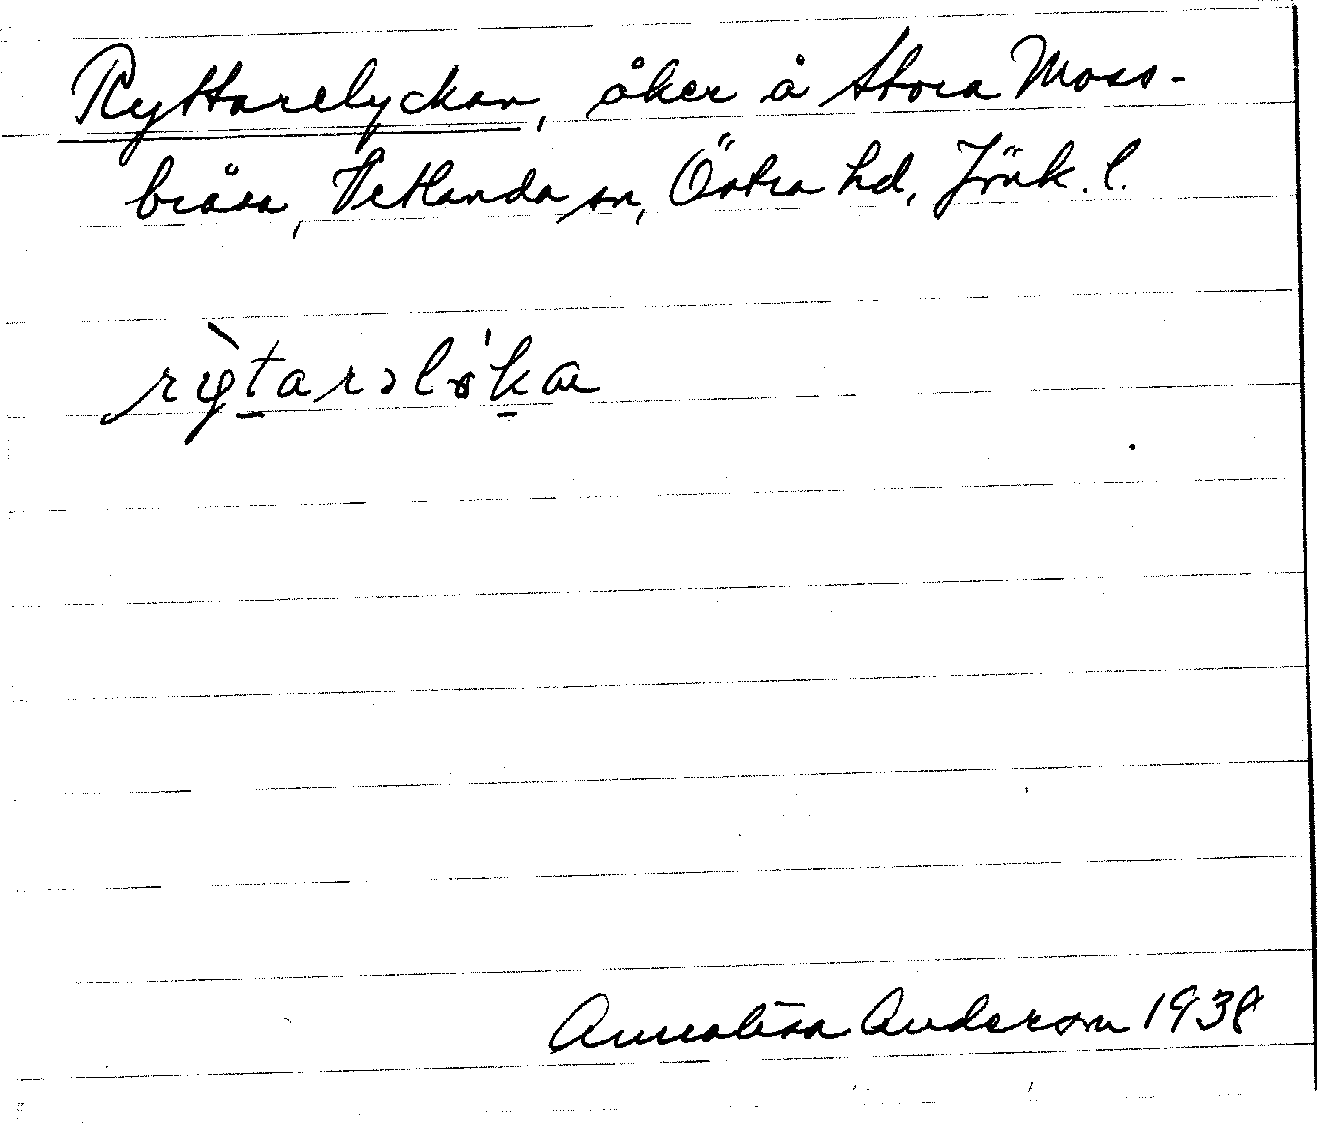 Ryttarelyckan, åker å Stora Moss-
bråna, Vetlanda sn, Östra hd, Jönk. l.
Annalisa Anderson 1938